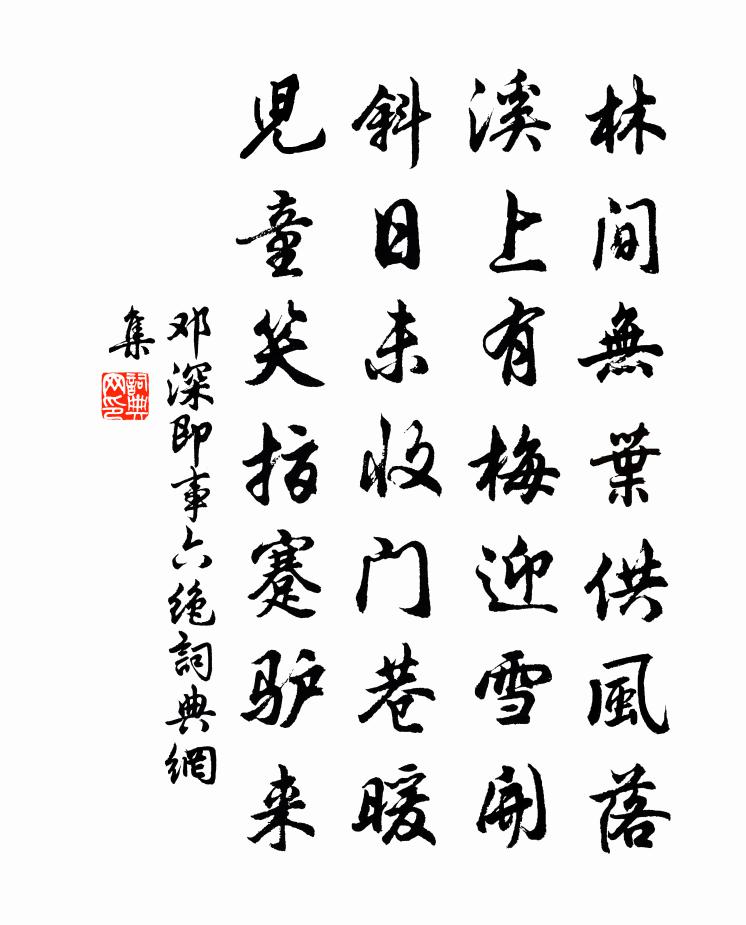 林间無葉供風落
溪上有梅迎雪開
斜日未收门巷暖
児童笑指蹇驴来
邓深即事六绝詞典網
集
詞典
网印